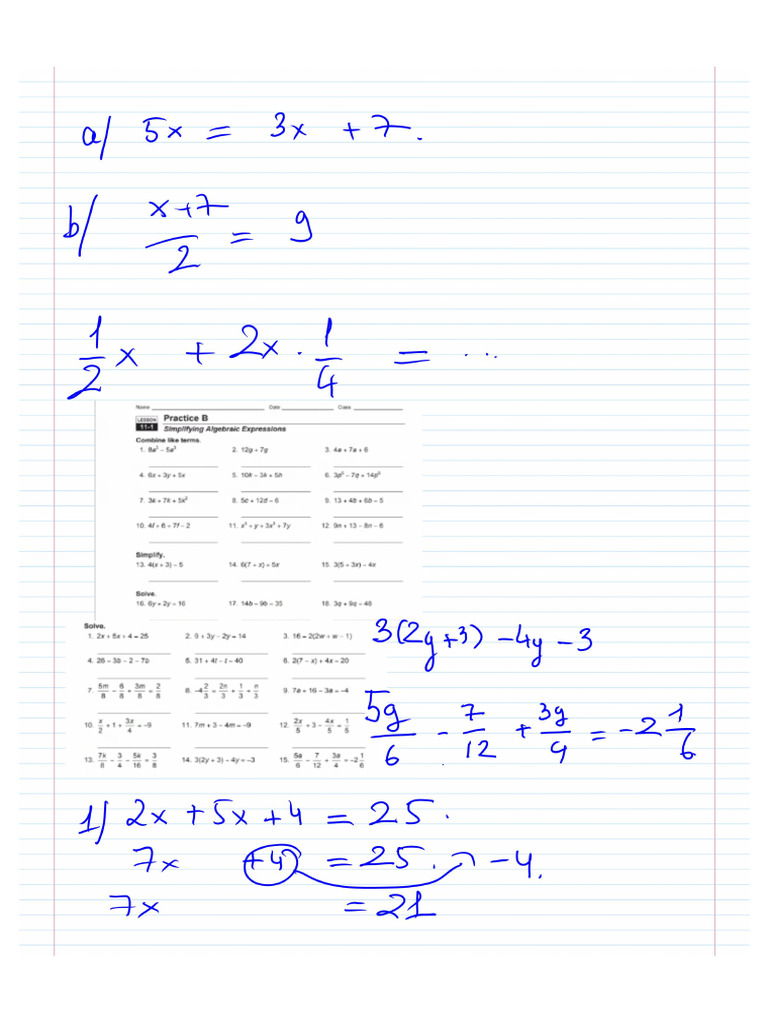 a/ 5x = 3x + 7.
b/ x+7/2 = 9
1/2 x + 2x . 1/4 = ...
Name Date Class
LESSON 11-1 Practice B
Simplifying Algebraic Expressions
Combine like terms.
1. 8a³ − 5a³ 2. 12g + 7g 3. 4a + 7a + 6
4. 6x + 3y + 5x 5. 10k − 3k + 5h 6. 3p⁵ − 7q + 14p⁵
7. 3k + 7k + 5k² 8. 5c + 12d − 6 9. 13 + 4b + 6b − 5
10. 4f + 6 + 7f − 2 11. x³ + y + 3x³ + 7y 12. 9n + 13 − 8n − 6
Simplify.
13. 4(x + 3) − 5 14. 6(7 + x) + 5x 15. 3(5 + 3x) − 4x
Solve.
16. 6y + 2y = 16 17. 14b − 9b = 35 18. 3q + 9q = 48
Solve.
1. 2x + 5x + 4 = 25 2. 9 + 3y − 2y = 14 3. 16 = 2(2w + w − 1)
3(2y+3) −4y −3
4. 26 = 3b − 2 − 7b 5. 31 + 4t − t = 40 6. 2(7 − x) + 4x = 20
7. 5m/8 − 6/8 + 3m/8 = 2/8 8. −4 2/3 = 2n/3 + 1/3 + n/3 9. 7a + 16 − 3a = −4
5g/6 − 7/12 + 3g/9 = −2 1/6
10. x/2 + 1 + 3x/4 = −9 11. 7m + 3 − 4m = −9 12. 2x/5 + 3 − 4x/5 = 1/5
13. 7k/8 − 3/4 − 5k/16 = 3/8 14. 3(2y + 3) − 4y = −3 15. 5a/6 − 7/12 + 3a/4 = −2 1/6
1/ 2x + 5x + 4 = 25.
7x +4 = 25. −4.
7x = 21